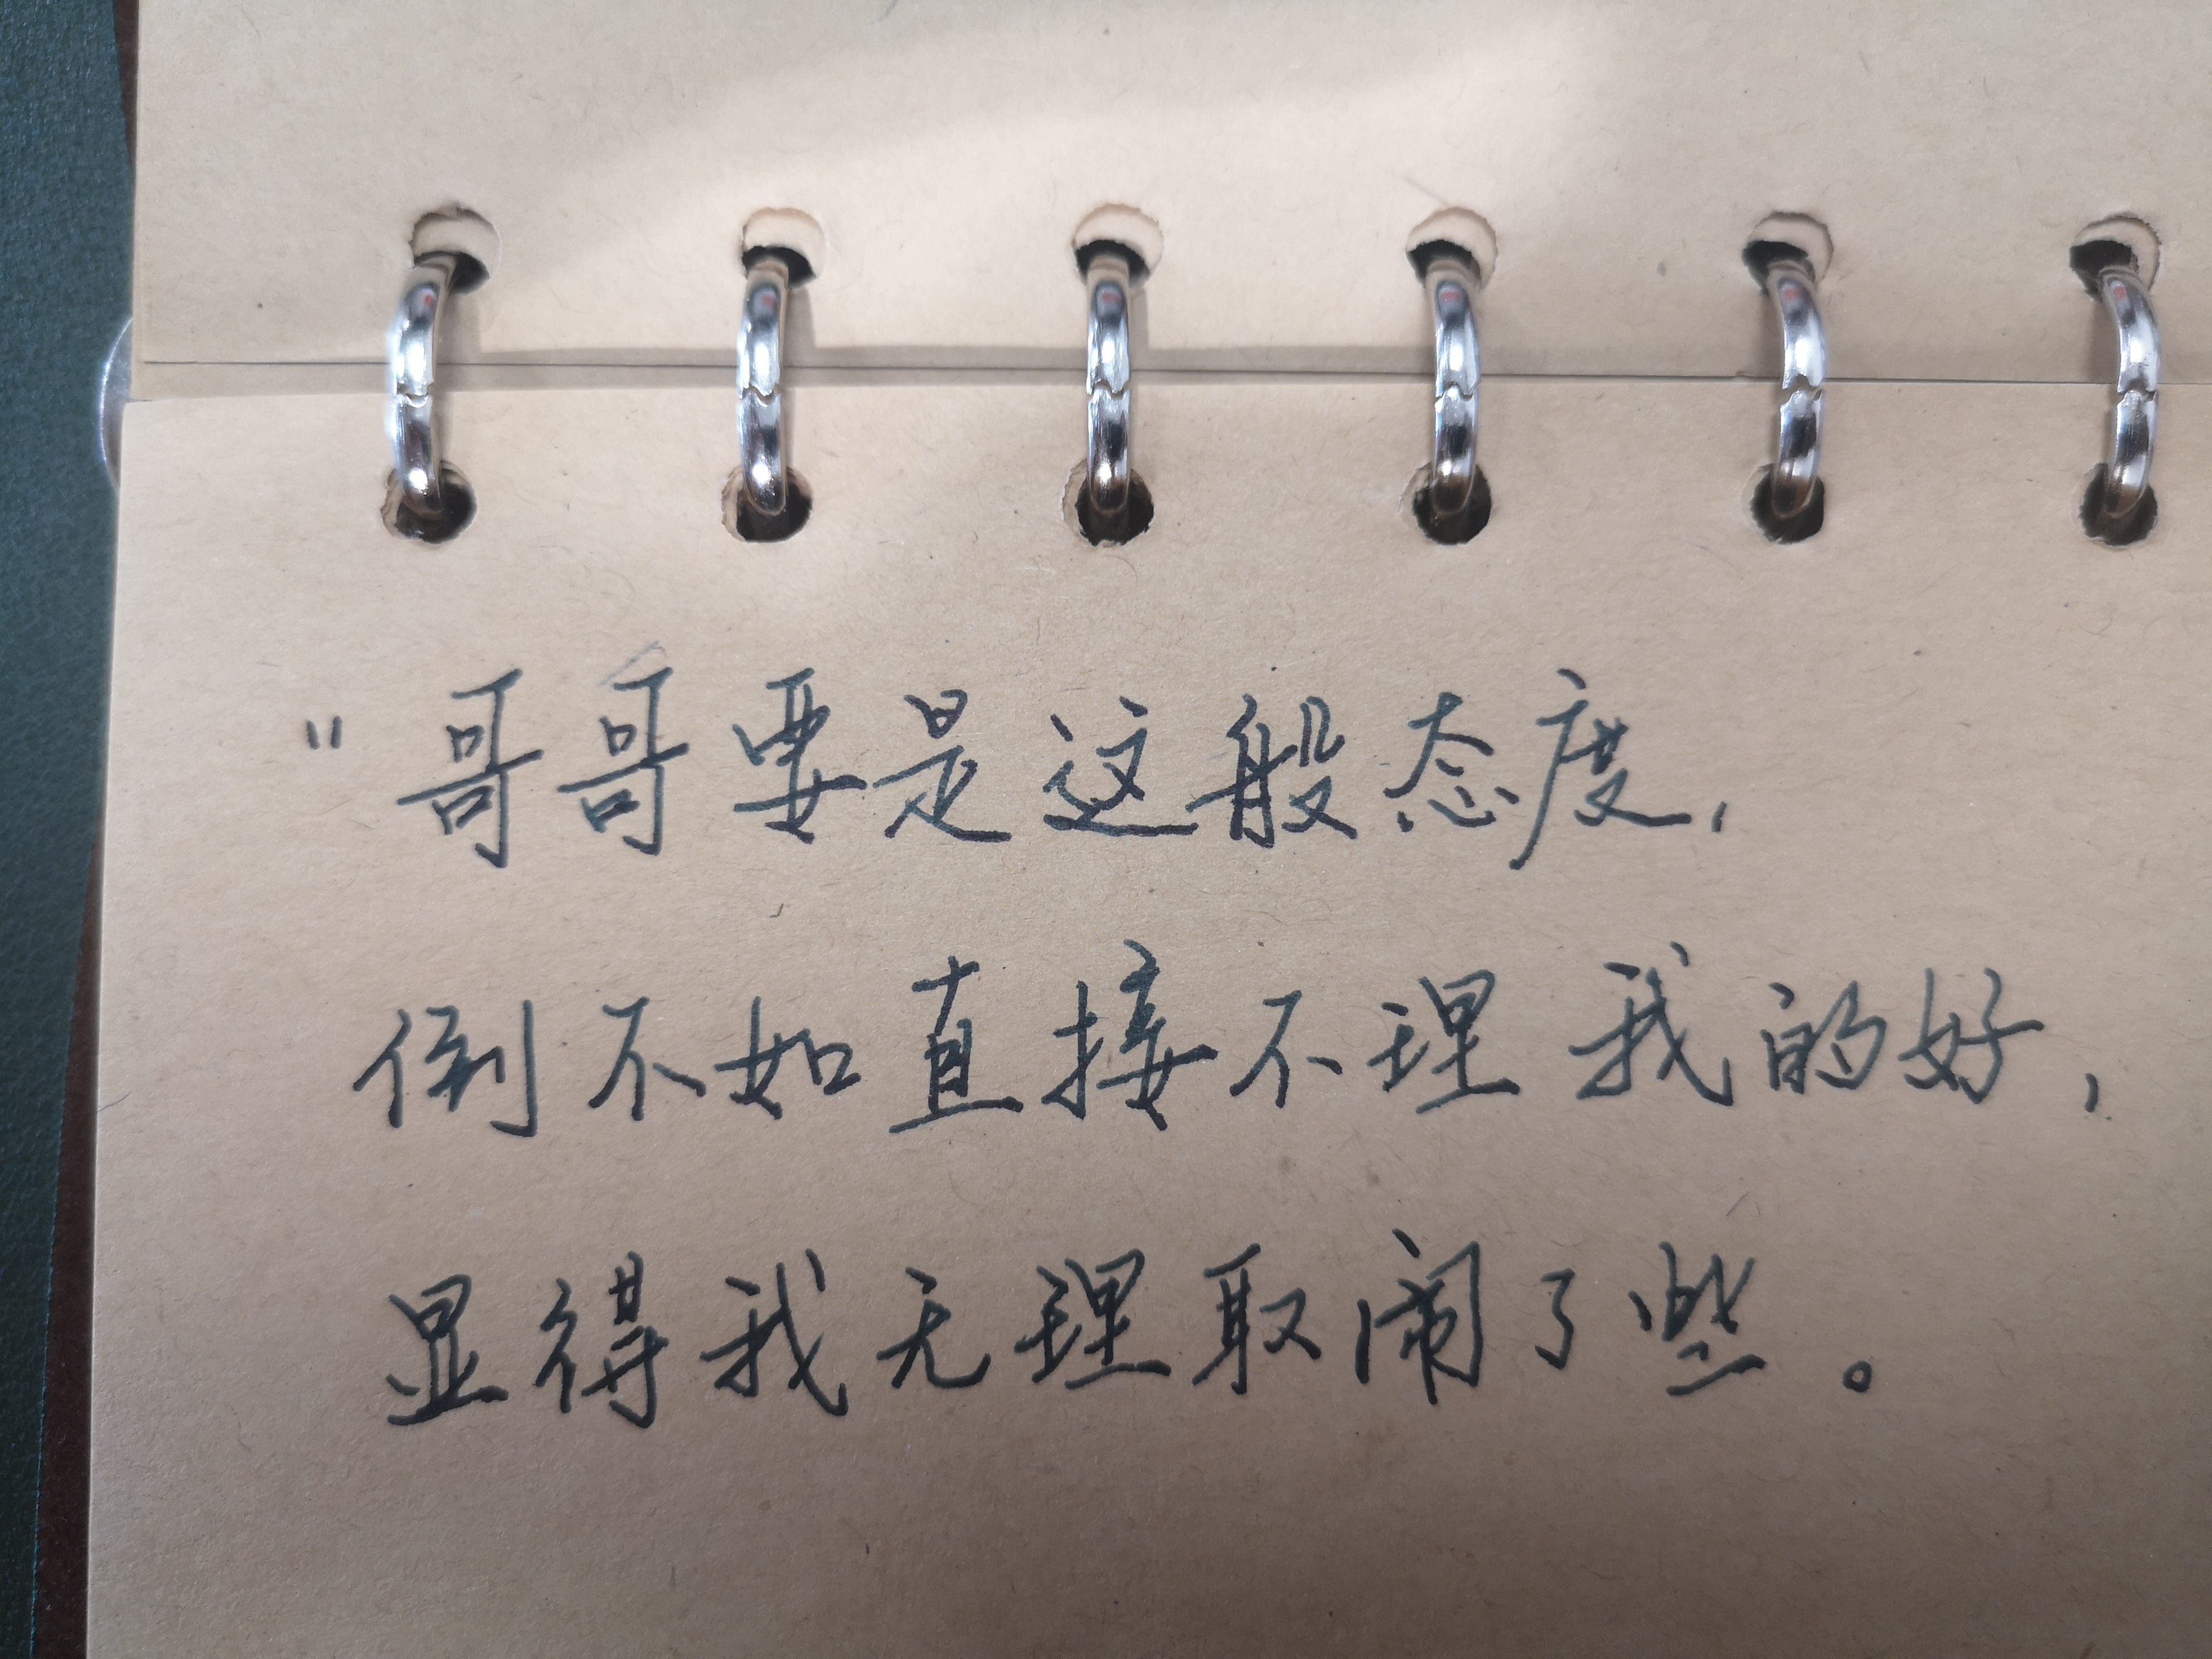 "哥哥要是这般态度,
倒不如直接不理我的好,
显得我无理取闹了些。